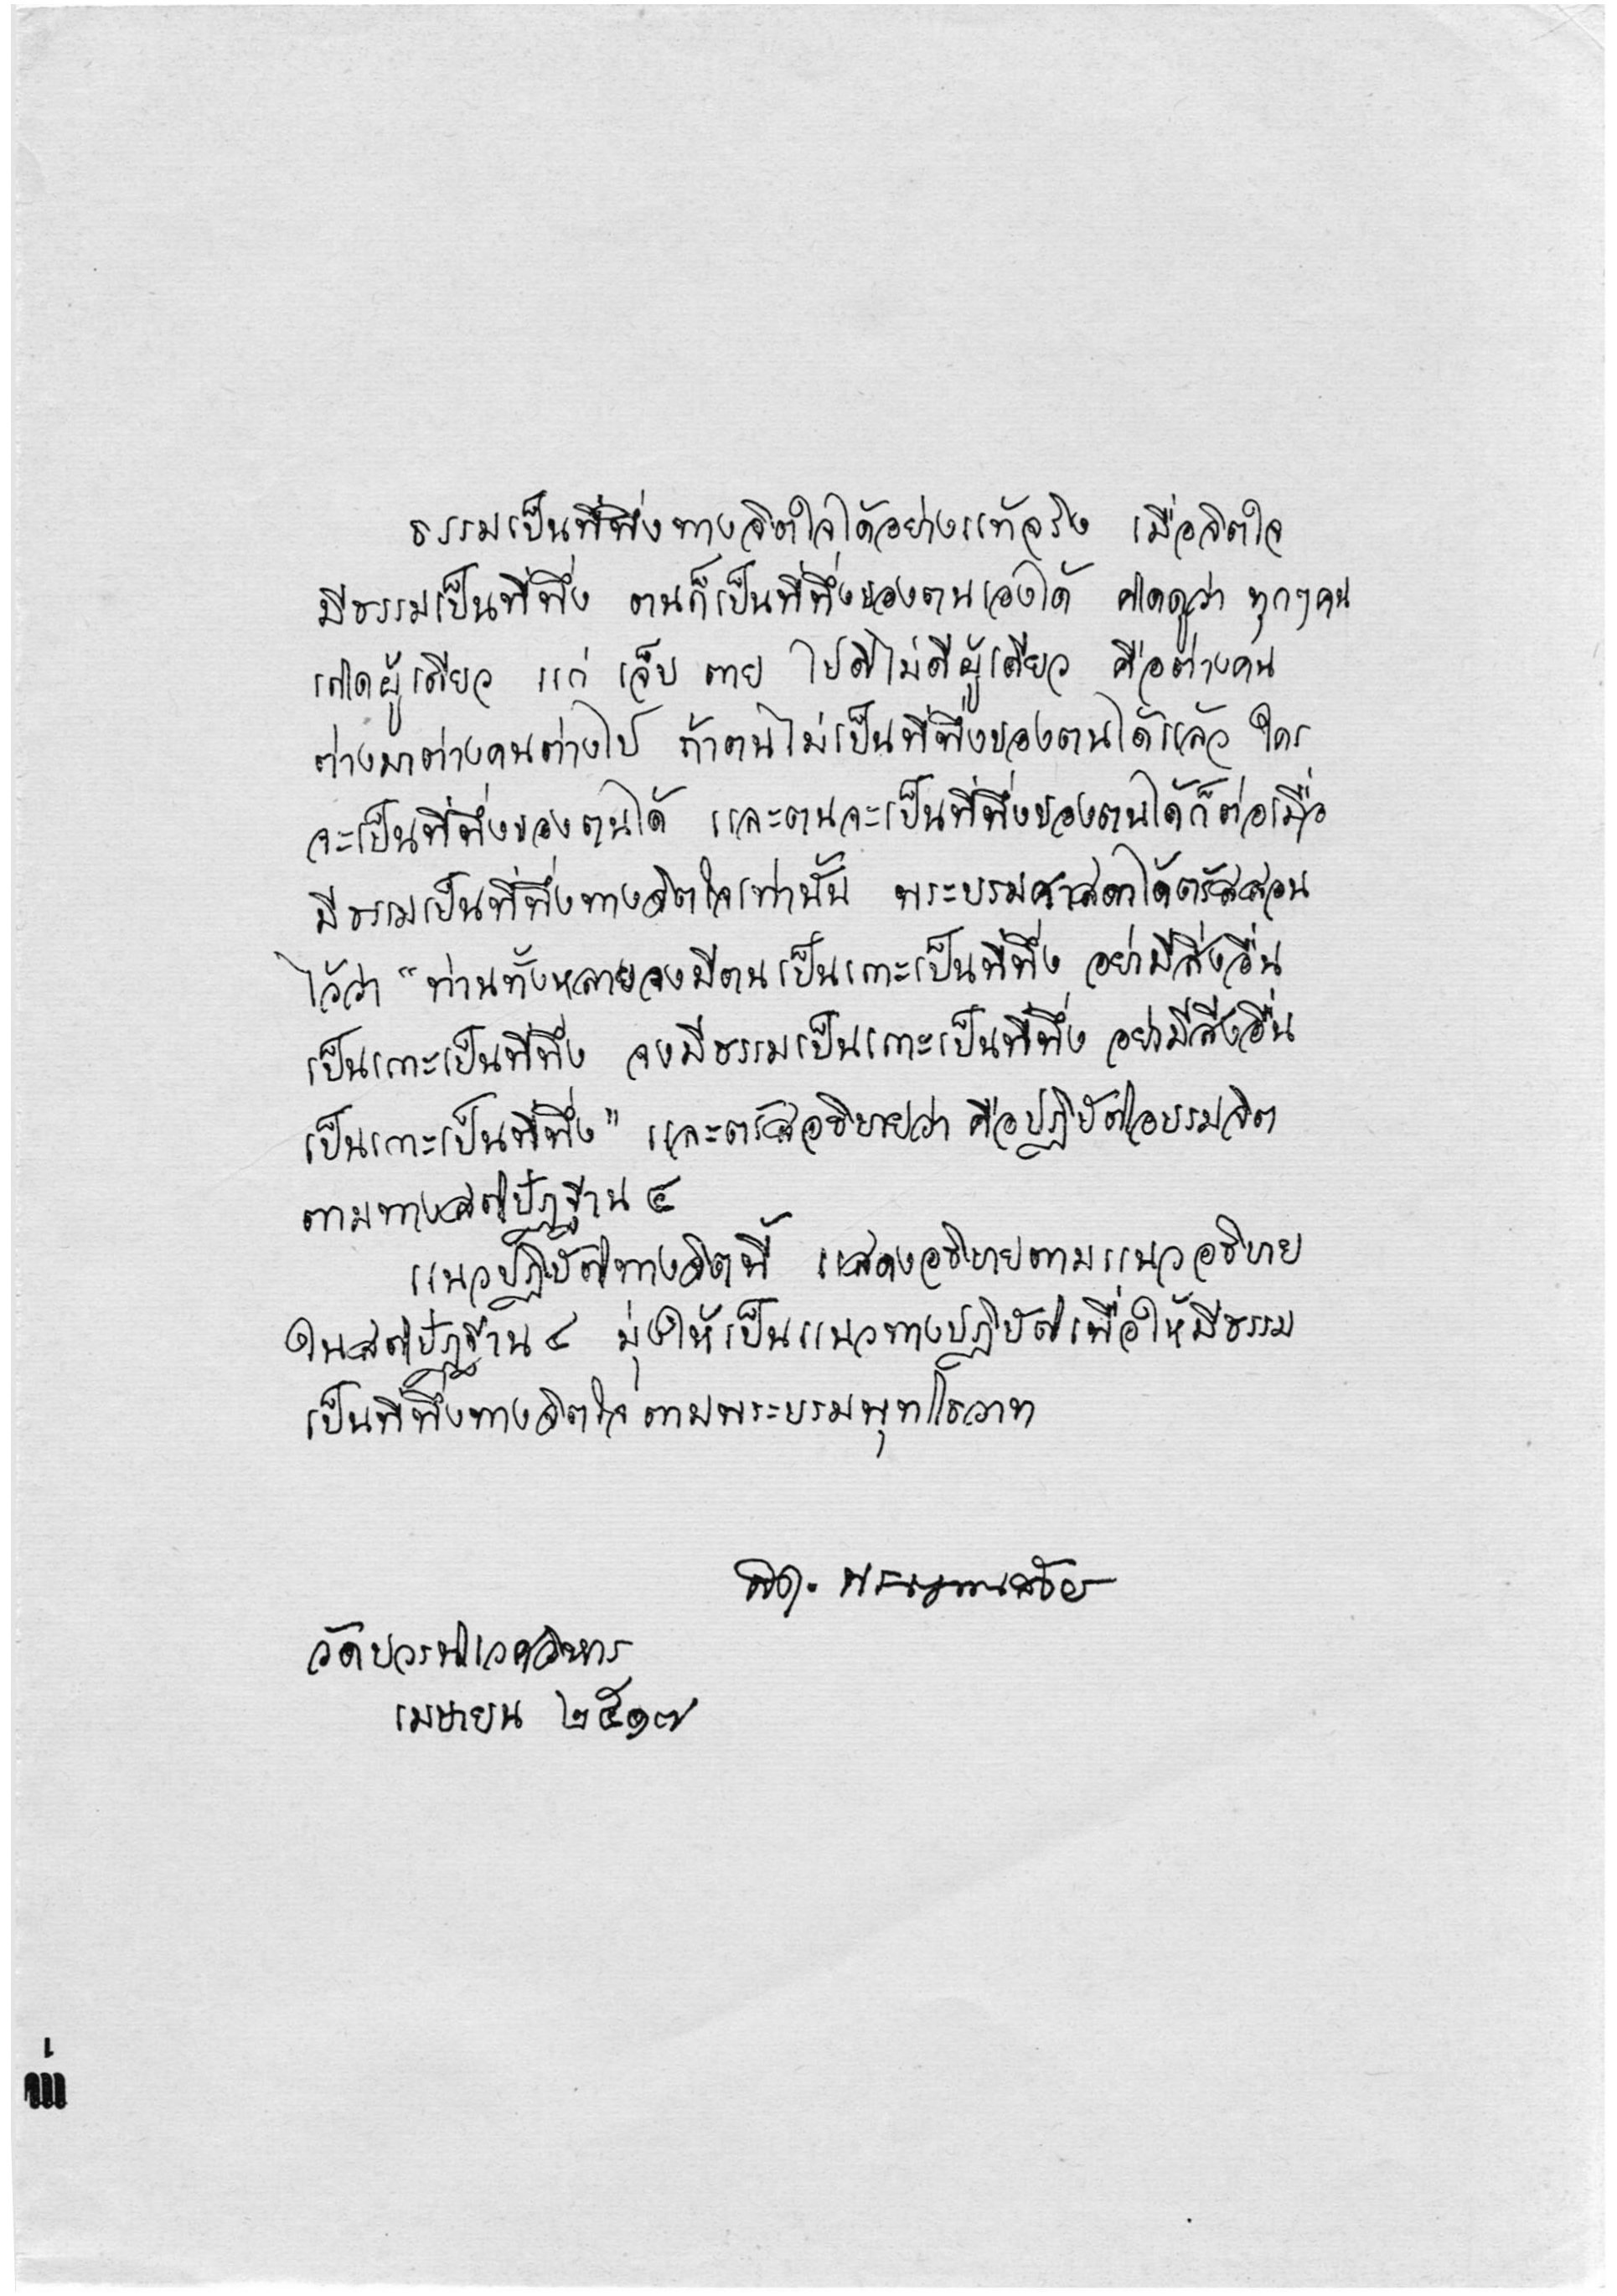 ธรรมเป็นที่พึ่งทางจิตใจได้อย่างแท้จริง เมื่อจิตใจ
มีธรรมเป็นที่พึ่ง ตนก็เป็นที่พึ่งของตนเองได้ คิดดูว่า ทุกๆ คน
เกิดผู้เดียว แก่ เจ็บ ตาย ไปดีไม่ดีผู้เดียว คือต่างคน
ต่างมาต่างคนต่างไป ถ้าตนไม่เป็นที่พึ่งของตนได้แล้ว ใคร
จะเป็นที่พึ่งของตนได้ และตนจะเป็นที่พึ่งของตนได้ก็ต่อเมื่อ
มีธรรมเป็นที่พึ่งทางจิตใจเท่านั้น พระบรมศาสดาได้ตรัสสอน
ไว้ว่า “ท่านทั้งหลายจงมีตนเป็นเกาะเป็นที่พึ่ง อย่ามีสิ่งอื่น
เป็นเกาะเป็นที่พึ่ง จงมีธรรมเป็นเกาะเป็นที่พึ่ง อย่ามีสิ่งอื่น
เป็นเกาะเป็นที่พึ่ง” และตรัสอธิบายว่า คือปฏิบัติอบรมจิต
ตามทางสติปัฏฐาน ๔
แนวปฏิบัติทางจิตนี้ แสดงอธิบายตามแนวอธิบาย
ในสติปัฏฐาน ๔ มุ่งให้เป็นแนวทางปฏิบัติเพื่อให้มีธรรม
เป็นที่พึ่งทางจิตใจ ตามพระบรมพุทโธวาท
วัดบวรนิเวศวิหาร
เมษายน ๒๕๑๗